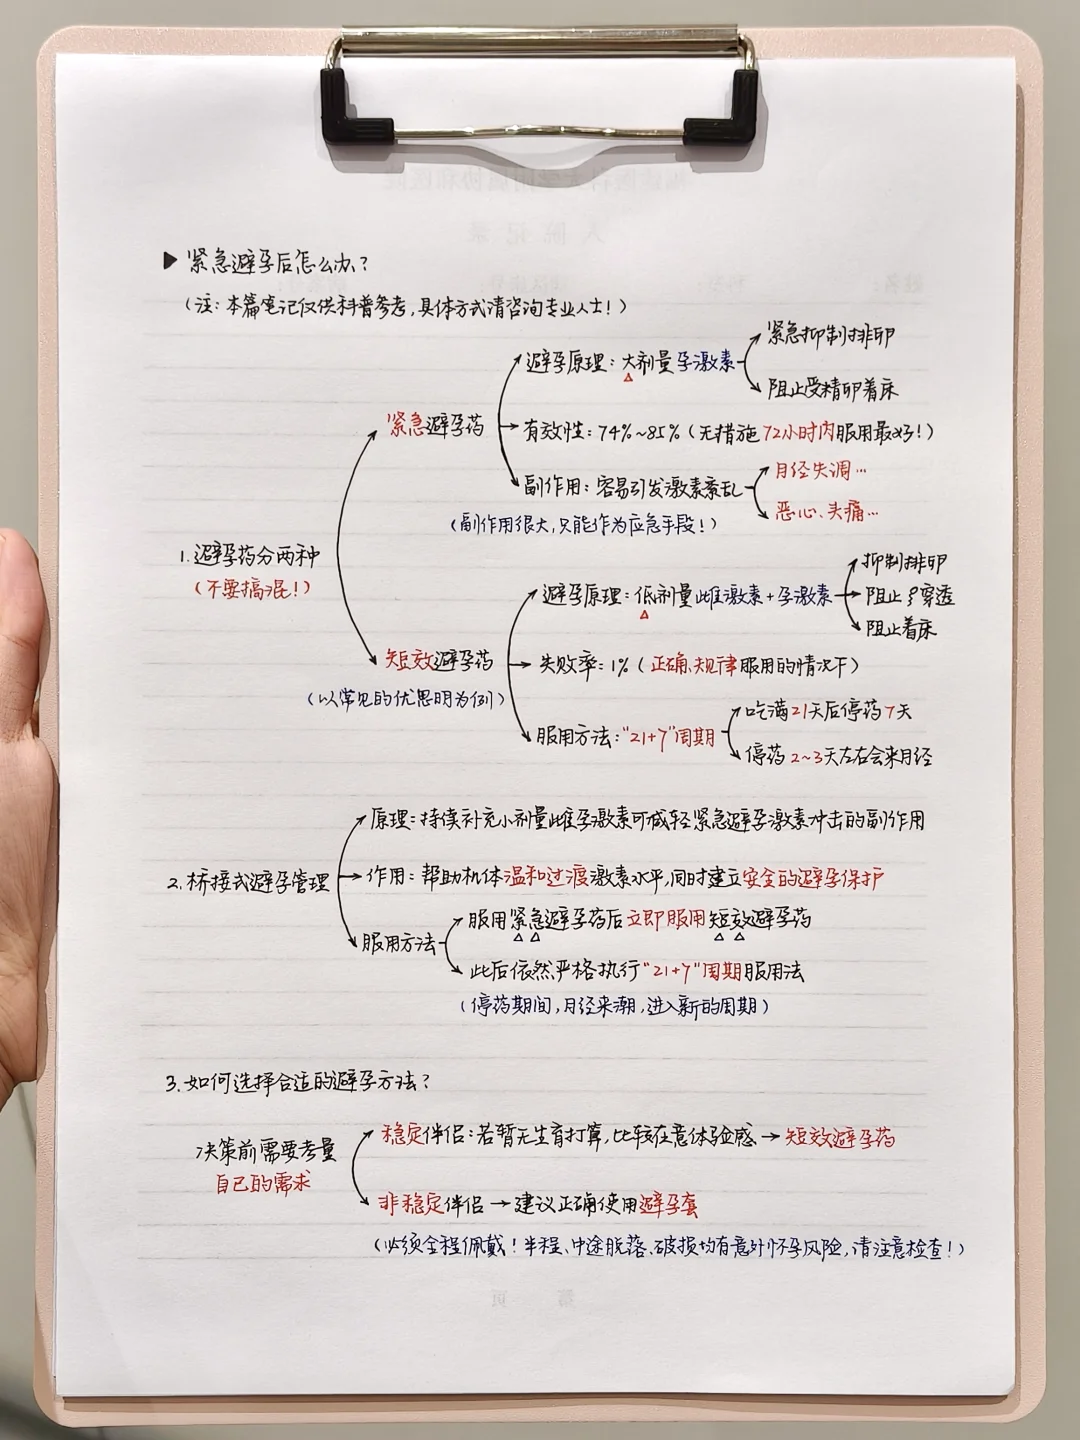 ▶ 紧急避孕后怎么办？
（注：本篇笔记仅供科普参考，具体方式请咨询专业人士！）
1. 避孕药分两种
（不要搞混！）
紧急避孕药
避孕原理：大剂量孕激素
紧急抑制排卵
阻止受精卵着床
有效性：74%~85%（无措施72小时内服用最好！）
副作用：容易引发激素紊乱
月经失调…
恶心、头痛…
（副作用很大，只能作为应急手段！）
短效避孕药
（以常见的优思明为例）
避孕原理：低剂量雌激素+孕激素
抑制排卵
阻止穿透
阻止着床
失败率：1%（正确、规律服用的情况下）
服用方法：“21+7”周期
吃满21天后停药7天
停药2~3天左右会来月经
2. 桥接式避孕管理
原理：持续补充小剂量雌孕激素可减轻紧急避孕激素冲击的副作用
作用：帮助机体温和过渡激素水平，同时建立安全的避孕保护
服用方法
服用紧急避孕药后立即服用短效避孕药
此后依然严格执行“21+7”周期服用法
（停药期间，月经来潮，进入新的周期）
3. 如何选择合适的避孕方法？
决策前需要考量
自己的需求
稳定伴侣：若暂无生育打算，比较在意体验感→短效避孕药
非稳定伴侣→建议正确使用避孕套
（必须全程佩戴！半程、中途脱落、破损均有意外怀孕风险，请注意检查！）